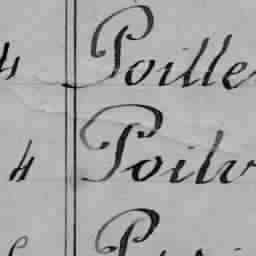 4 Poille
4 Poilv